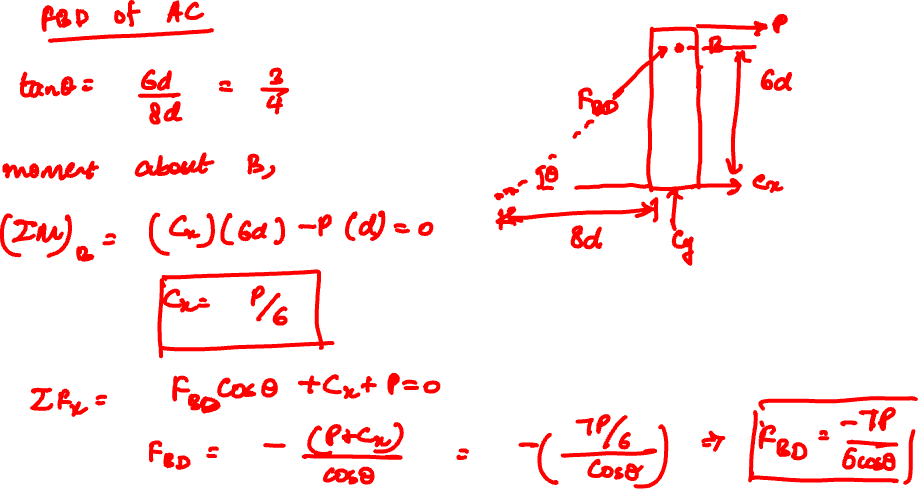 FBD of AC
tanθ = 6d/8d = 3/4
moment about B,
(ΣM)_B = (Cx)(6d) - P(d) = 0
Cx = P/6
ΣFx = F_BD cosθ + Cx + P = 0
F_BD = - (P+Cx)/cosθ = -(7P/6/cosθ) ⇒ F_BD = -7P/6cosθ
P
B
6d
F_BD
θ
Cx
8d
Cy